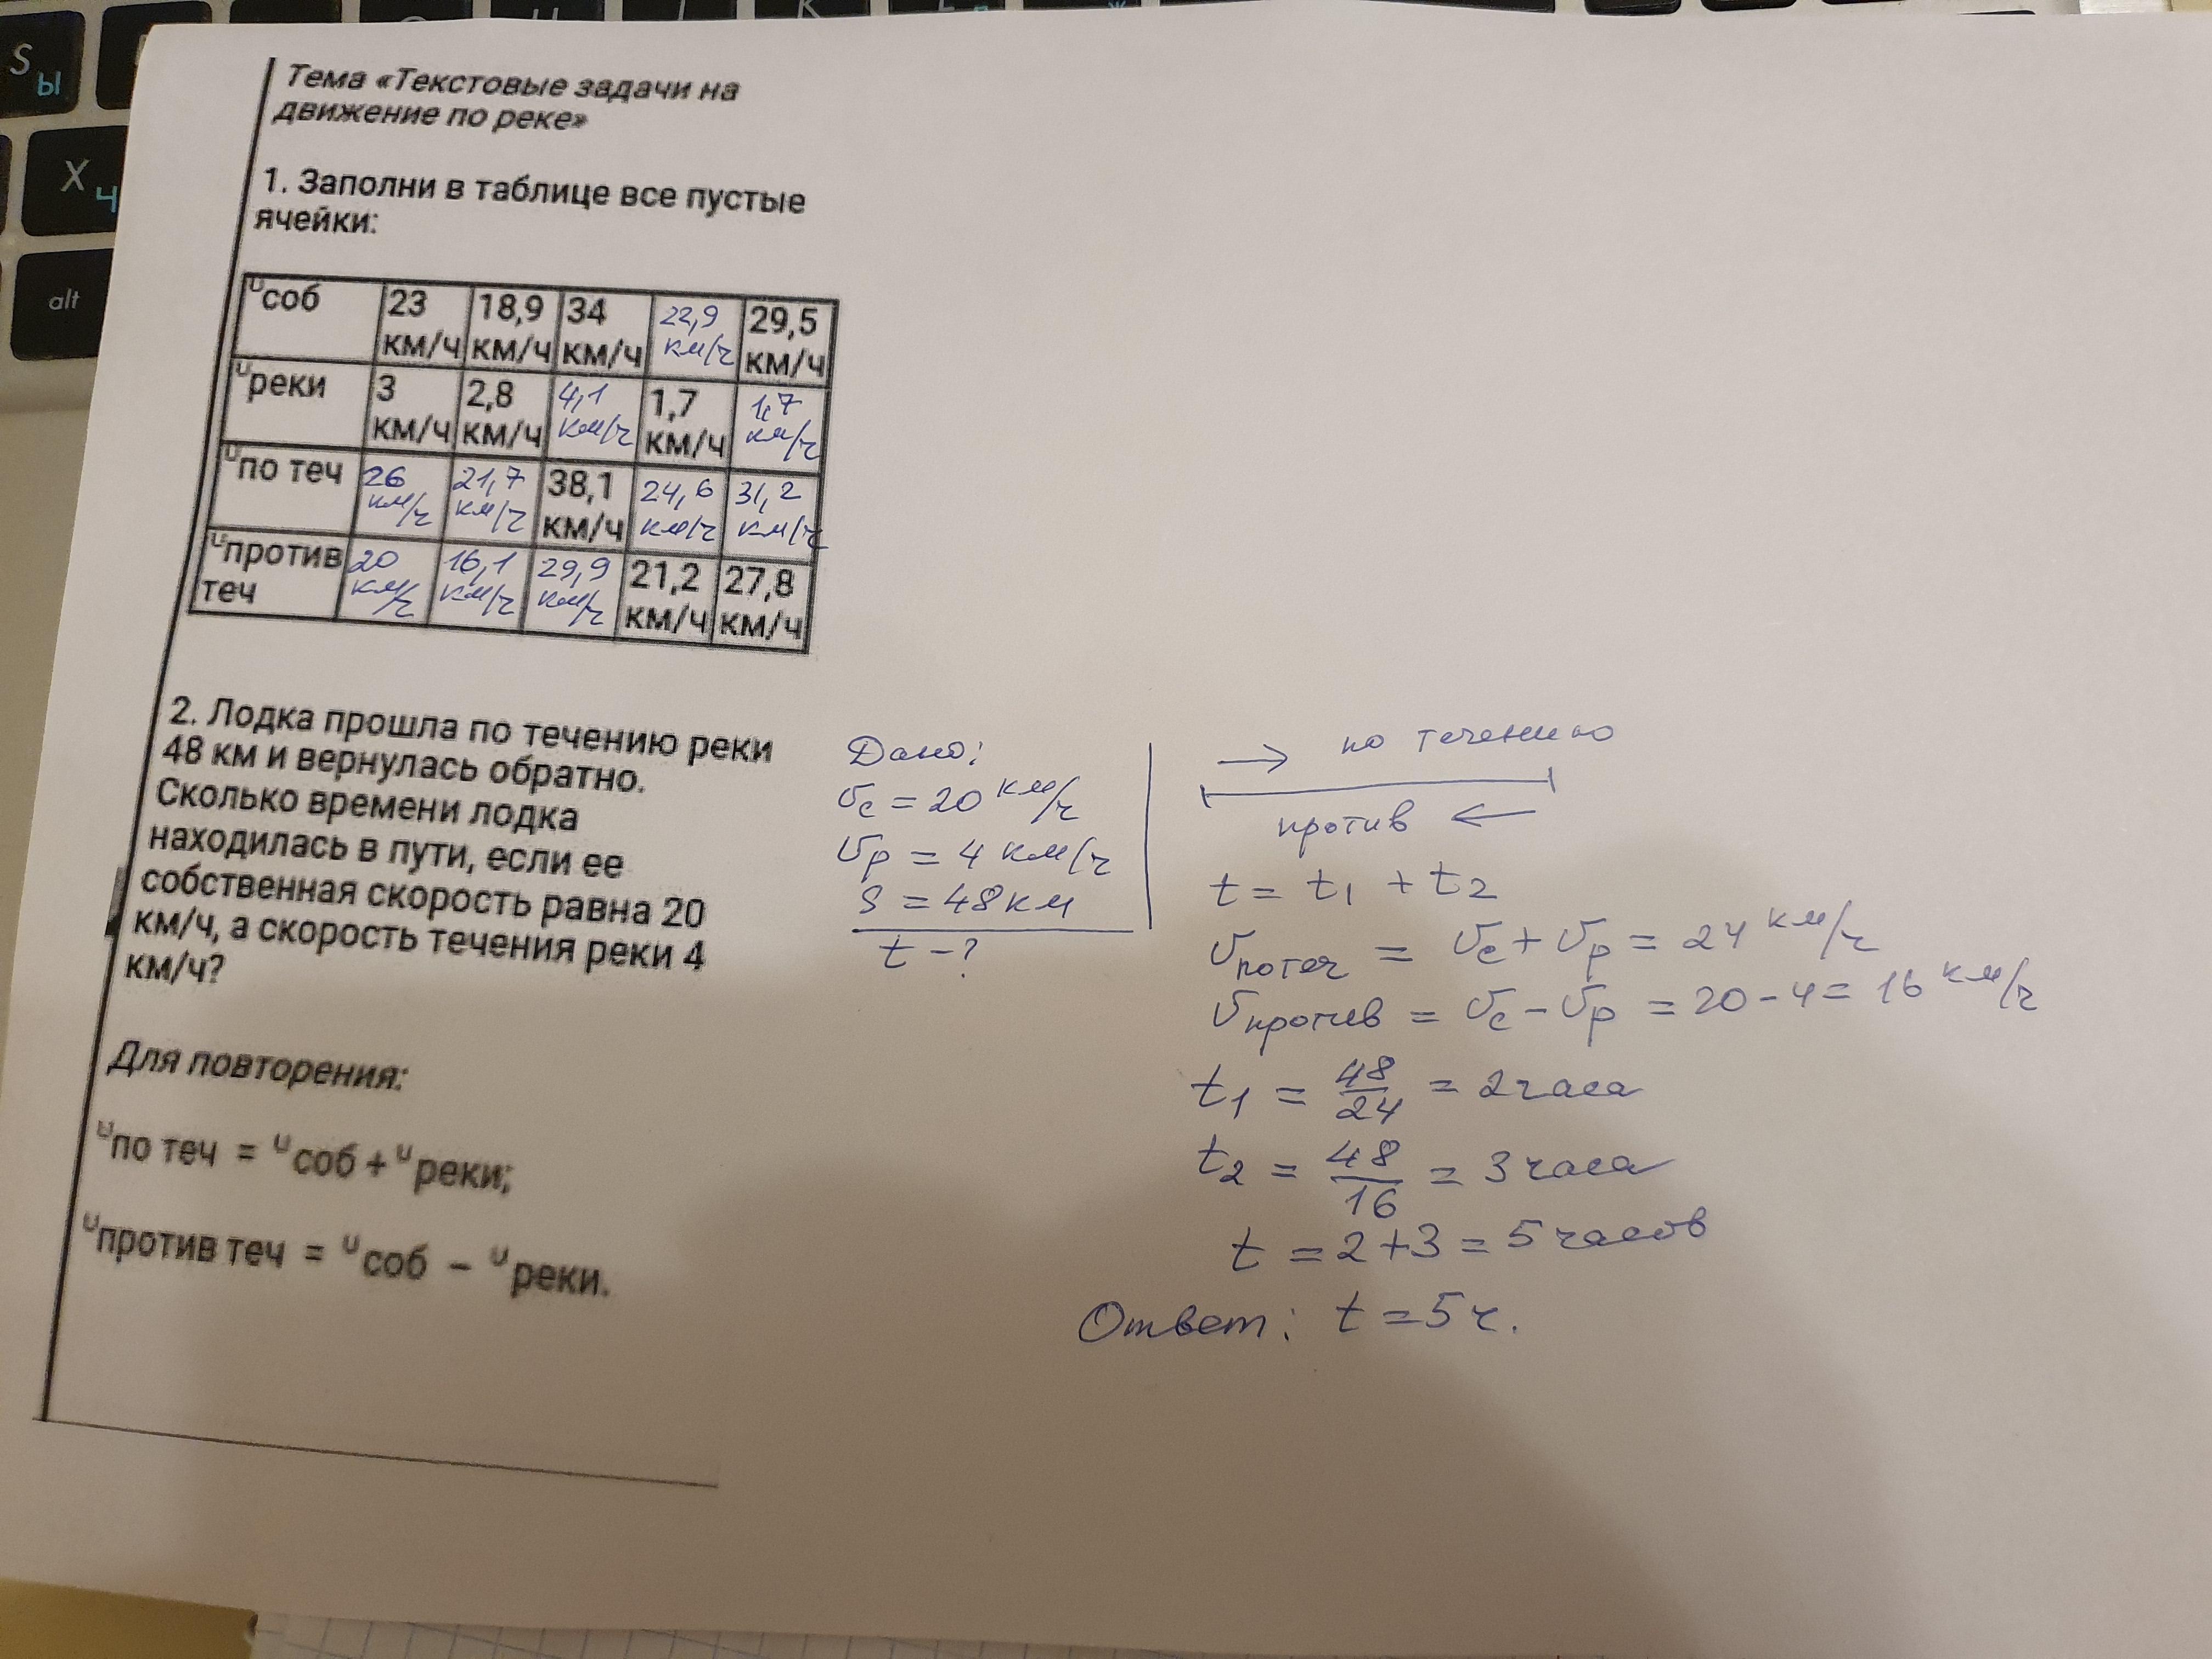 S Ы
Х Ч
alt
Тема «Текстовые задачи на
движение по реке»
1. Заполни в таблице все пустые
ячейки:
υсоб 23 км/ч 18,9 км/ч 34 км/ч 22,9 км/ч 29,5 км/ч
υреки 3 км/ч 2,8 км/ч 4,1 км/ч 1,7 км/ч 1,7 км/ч
υпо теч 26 км/ч 21,7 км/ч 38,1 км/ч 24,6 км/ч 31,2 км/ч
υпротив теч 20 км/ч 16,1 км/ч 29,9 км/ч 21,2 км/ч 27,8 км/ч
2. Лодка прошла по течению реки
48 км и вернулась обратно.
Сколько времени лодка
находилась в пути, если ее
собственная скорость равна 20
км/ч, а скорость течения реки 4
км/ч?
Для повторения:
υпо теч = υсоб + υреки;
υпротив теч = υсоб – υреки.
Дано:
υс = 20 км/ч
υр = 4 км/ч
S = 48 км
t - ?
→ по течению
против ←
t = t1 + t2
υпо теч = υс + υр = 24 км/ч
υпротив = υс - υр = 20 - 4 = 16 км/ч
t1 = 48/24 = 2 часа
t2 = 48/16 = 3 часа
t = 2 + 3 = 5 часов
Ответ: t = 5 ч.